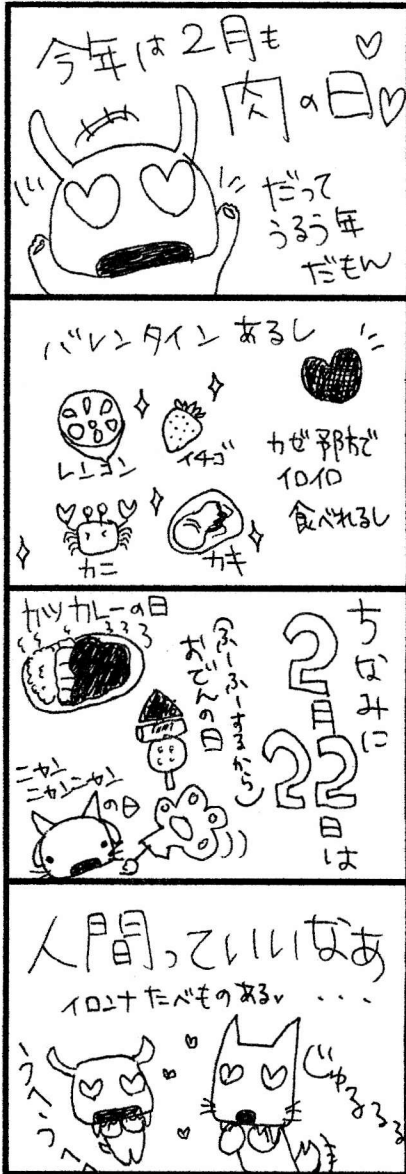 今年は2月も
肉の日
だって
うるう年
だもん
バレンタイン あるし
レンコン
イチゴ
カニ
カキ
カゼ予防で
イロイロ
食べれるし
ちなみに
2月
22
日は
(ふーふーするから)
おでんの日
カツカレーの日
ニャン
ニャンニャン
の日
人間っていいなあ
イロンナ たべものある ・・・
うへうへ
じゅるるるる